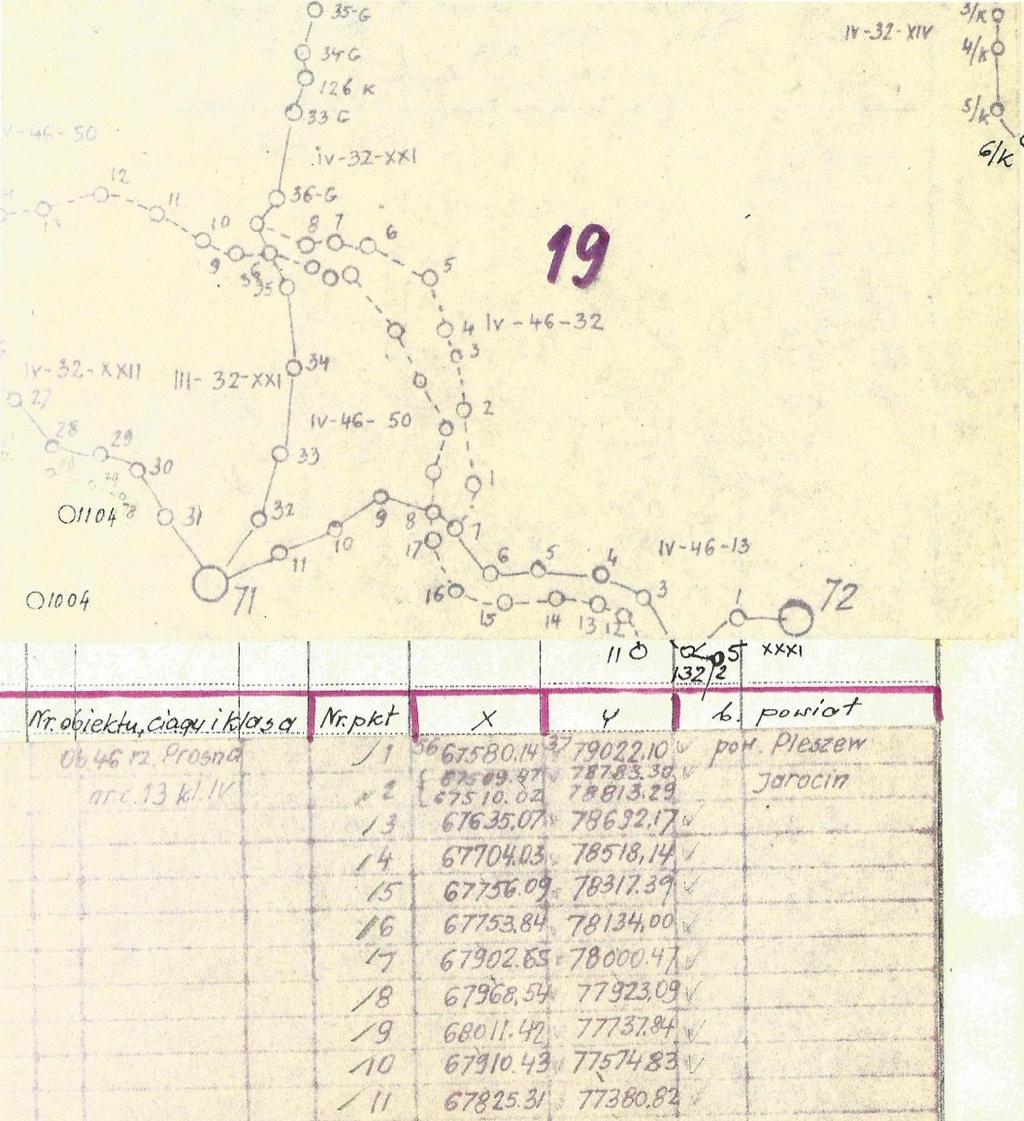 35-G
34-G
126 K
33 G
IV-32-XIV
3/K
4/K
5/K
6/K
V-46-50
IV-32-XXI
36-G
12
11
13
10
9
8
7
6
5
19
35
4
IV-46-32
3
IV-32-XXII
III-32-XXI
34
27
2
IV-46-50
28
29
30
33
1
1104
31
32
9
8
7
10
17
11
6
5
4
IV-46-13
71
3
1004
16
15
14
13
12
1
72
11
132/2
5
XXXI
Nr. obiektu, ciągu i klasa Nr. pkt X Y b. powiat
Ob 46 rz. Prosna /1 56 67580.14 37 79022.10 pow. Pleszew
67509.97 78783.30 Jarocin
nr c. 13 kl. IV 2 67510.02 78813.29
/3 67635,07 78692,17
/4 67704.03 78518,14
/5 67756.09 78317.39
/6 67753,84 78134,00
/7 67902.65 78000.47
/8 67968,54 77923,09
/9 68011.42 77737.84
/10 67910.43 77574.83
/11 67825.31 77380.82